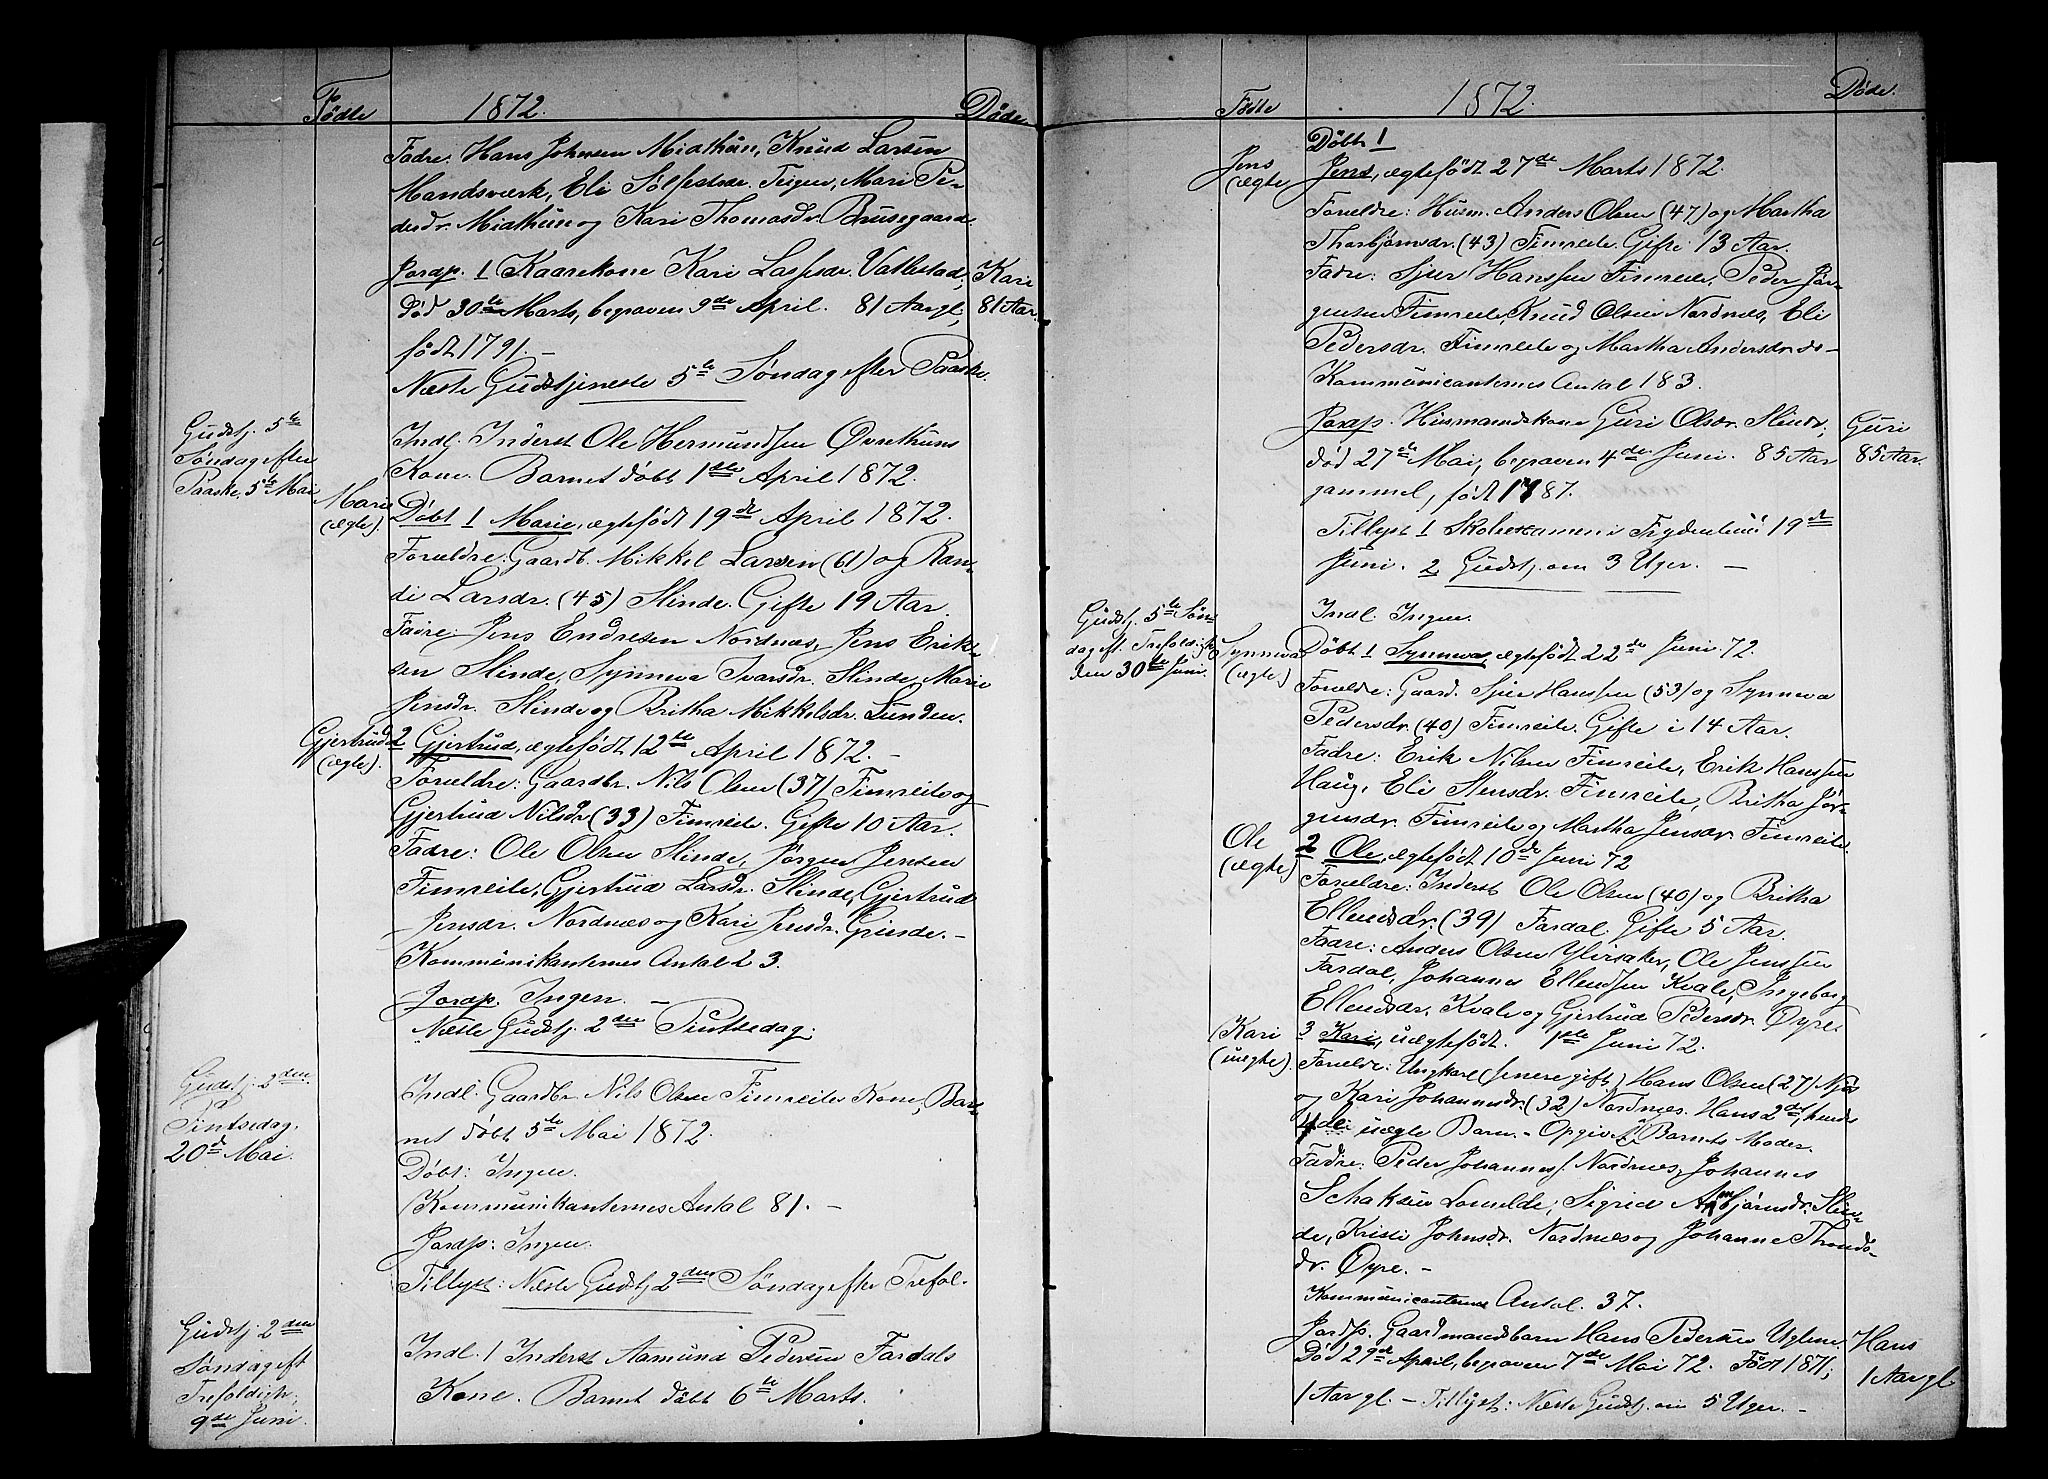 Fødte 1872. Døde
Fadre: Hans Johnsen Midthun, Knud Larsen
Handsværk, Eli Sølfestsdr. Teigen, Mari Pe-
dersdr. Midthun og Kari Thomasdr. Brusegaard.
Jordp. 1 Kaarekone Kari Lassesdr. Vallestad; Kari
død 30te Marts, begraven 9de April. 81 Aar gl, 81 Aar.
født 1791. –
Næste Gudstjeneste 5te Søndag efter Paaske.
Gudstj. 5te
Søndag efter
Paaske, 5te Mai
Indl: Inderst Ole Hermundsen Øvrethuns
Kone. Barnet døbt 1ste April 1872.
Marie
(ægte).
Døbt 1 Marie, ægtefødt 19de April 1872.
Forældre: Gaardb. Mikkel Larsen (61) og Ran-
di Larsdr. (45) Slinde. Gifte 19 Aar.
Fadre: Jens Endresen Nordnæs, Jens Erik-
sen Slinde, Synneva Ivarsdr. Slinde, Marie
Jensdr. Slinde og Britha Mikkelsdr. Lunden.
Gjertrud
(ægte).
2 Gjertrud, ægtefødt 12te April 1872. –
Forældre: Gaardbr. Nils Olsen (37) Fimreite og
Gjertrud Nilsdr (33) Fimreite. Gifte 10 Aar.
Fadre: Ole Olsen Slinde, Jørgen Jensen
Fimreite, Gjertrud Larsdr. Slinde, Gjertrud
Jensdr. Nordnæs og Kari Jensdr. Grinde. –
Kommunikanternes Antal 23.
Jordp. Ingen. –
Næste Gudstj. 2den Pintsedag.
Gudstj. 2den
Pintsedag,
20de Mai.
Indl: Gaardbr Nils Olsen Fimreites Kone, Bar-
net døbt 5te Mai 1872.
Døbt: Ingen.
Kommunikanternes Antal 81. –
Jordp: Ingen.
Tillyst: Næste Gudstj. 2den Søndag efter Trefol.
Gudstj. 2den
Søndag eft
Trefoldigh,
9de Juni.
Indl. 1 Inderst Aamund Pedersen Fardals
Kone. Barnet døbt 6te Marts.
Fødte 1872. Døde.
Jens
(ægte
Døbt 1
Jens, ægtefødt 27de Marts 1872.
Forældre: Husm. Anders Olsen (47) og Martha
Thorbjørnsdr. (43) Fimreite. Gifte 13 Aar.
Fadre: Sjur Hanssen Fimreite, Peder Jør-
gensen Fimreite, Knud Olsen Nordnæs, Eli
Pedersdr. Fimreite og Martha Andersdr. ds –
Kommunicanternes Antal 183.
Jordp. Husmandskone Guri Olsdr. Slinde; Guri
død 27de Mai, begraven 4de Juni. 85 Aar 85 Aar.
gammel, født 1787.
Tillyst 1 Skoleexamen i 19de
Juni. 2 Gudstj. om 3 Uger. –
Gudstj. 5te Søn-
dag eft. Trefoldigh.
den 30te Juni.
Indl. Ingen.
Synneva
(ægte)
Døbt 1 Synneva, ægtefødt 22de Juni 72.
Forældre: Gaard. Sjur Hanssen (53) og Synneva
Pedersdr. (40) Fimreite. Gifte i 14 Aar.
Fadre: Erik Nilsen Fimreite, Erik Hanssen
Haug, Eli Stensdr. Fimreite, Britha Jør-
gensdr. Fimreite og Martha Jensdr. Fimreite.
Ole
(ægte)
2 Ole, ægtefødt 10de Juni 72
Forældre: Inderst Ole Olsen (40) og Britha
Ellendsdr. (39) Fardal. Gifte 5 Aar.
Fadre: Anders Olsen Ylvisaker, Ole Jenssen
Fardal, Johannes Ellendsen Kvale, Ingeborg
Ellendsdr. Kvale og Gjertrud Pedersdr. Øyre.
Kari
(uægte)
3 Kari, uægtefødt. 1ste Juni 72.
Forældre: Ungkarl (senere gift) Hans Olsen (27) Njøs
og Kari Johannesdr. (32) Nordnæs. Hans 2det, hendes
4de uægte Barn. – Opgiver Barnets Moder.
Fadre: Peder Johanness. Nordnæs, Johannes
Schaksen Lomelde, Sigrid Arnbjørnsdr. Slin-
de, Kristi Johnsdr. Nordnæs og Johanne Thronds-
dr. Øyre. –
Kommunicanternes Antal. 37.
Jordp. Gaardmandsbarn Hans Pedersen Uglum. Hans
Død 29de April, begraven 7de Mai 72. Født 1871; 1 Aar gl.
1 Aar gl. – Tillyst: Næste Gudstj. om 5 Uger. –